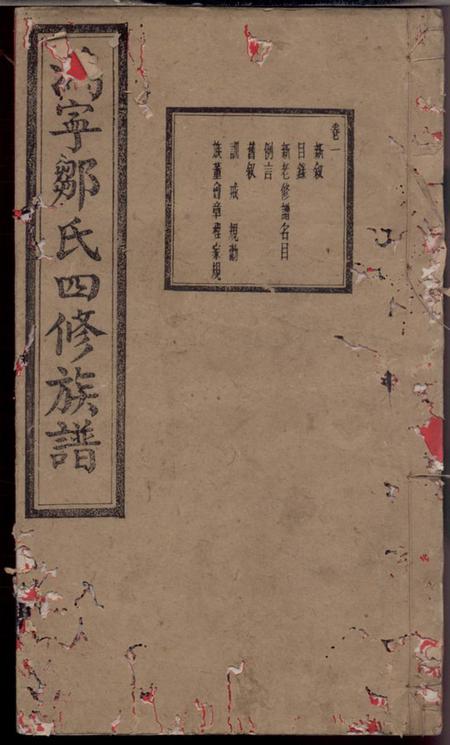 卷一
新叙
目錄
新老修譜名目
例言
舊叙
訓戒規勸
族董會章程家規
寧鄒氏四修族譜